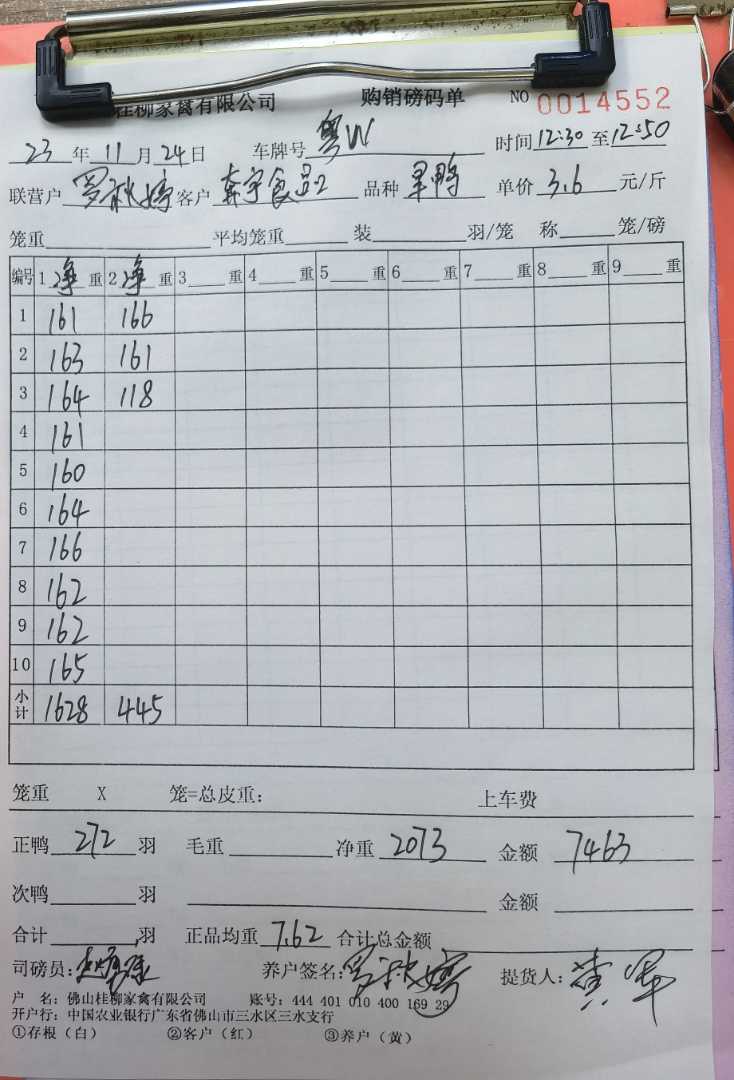 桂柳家禽有限公司 购销磅码单 NO 0014552
23 年 11 月 24 日 车牌号 粤W 时间 12:30 至 12:50
联营户 罗秋婷 客户 客户 品种 单价 3.6 元/斤
笼重 平均笼重 装 羽/笼 称 笼/磅
编号 1 净 重 2 净 重 3 重 4 重 5 重 6 重 7 重 8 重 9 重
1 161 166
2 163 161
3 164 118
4 161
5 160
6 164
7 166
8 162
9 162
10 165
小计 1628 445
笼重 X 笼=总皮重: 上车费
正鸭 272 羽 毛重 净重 2073 金额 7463
次鸭 羽 金额
合计 羽 正品均重 7.62 合计总金额
司磅员: 养户签名: 罗秋婷 提货人: 黄军
户 名: 佛山桂柳家禽有限公司 账号: 444 401 010 400 169 29
开户行: 中国农业银行广东省佛山市三水区三水支行
①存根(白) ②客户(红) ③养户(黄)